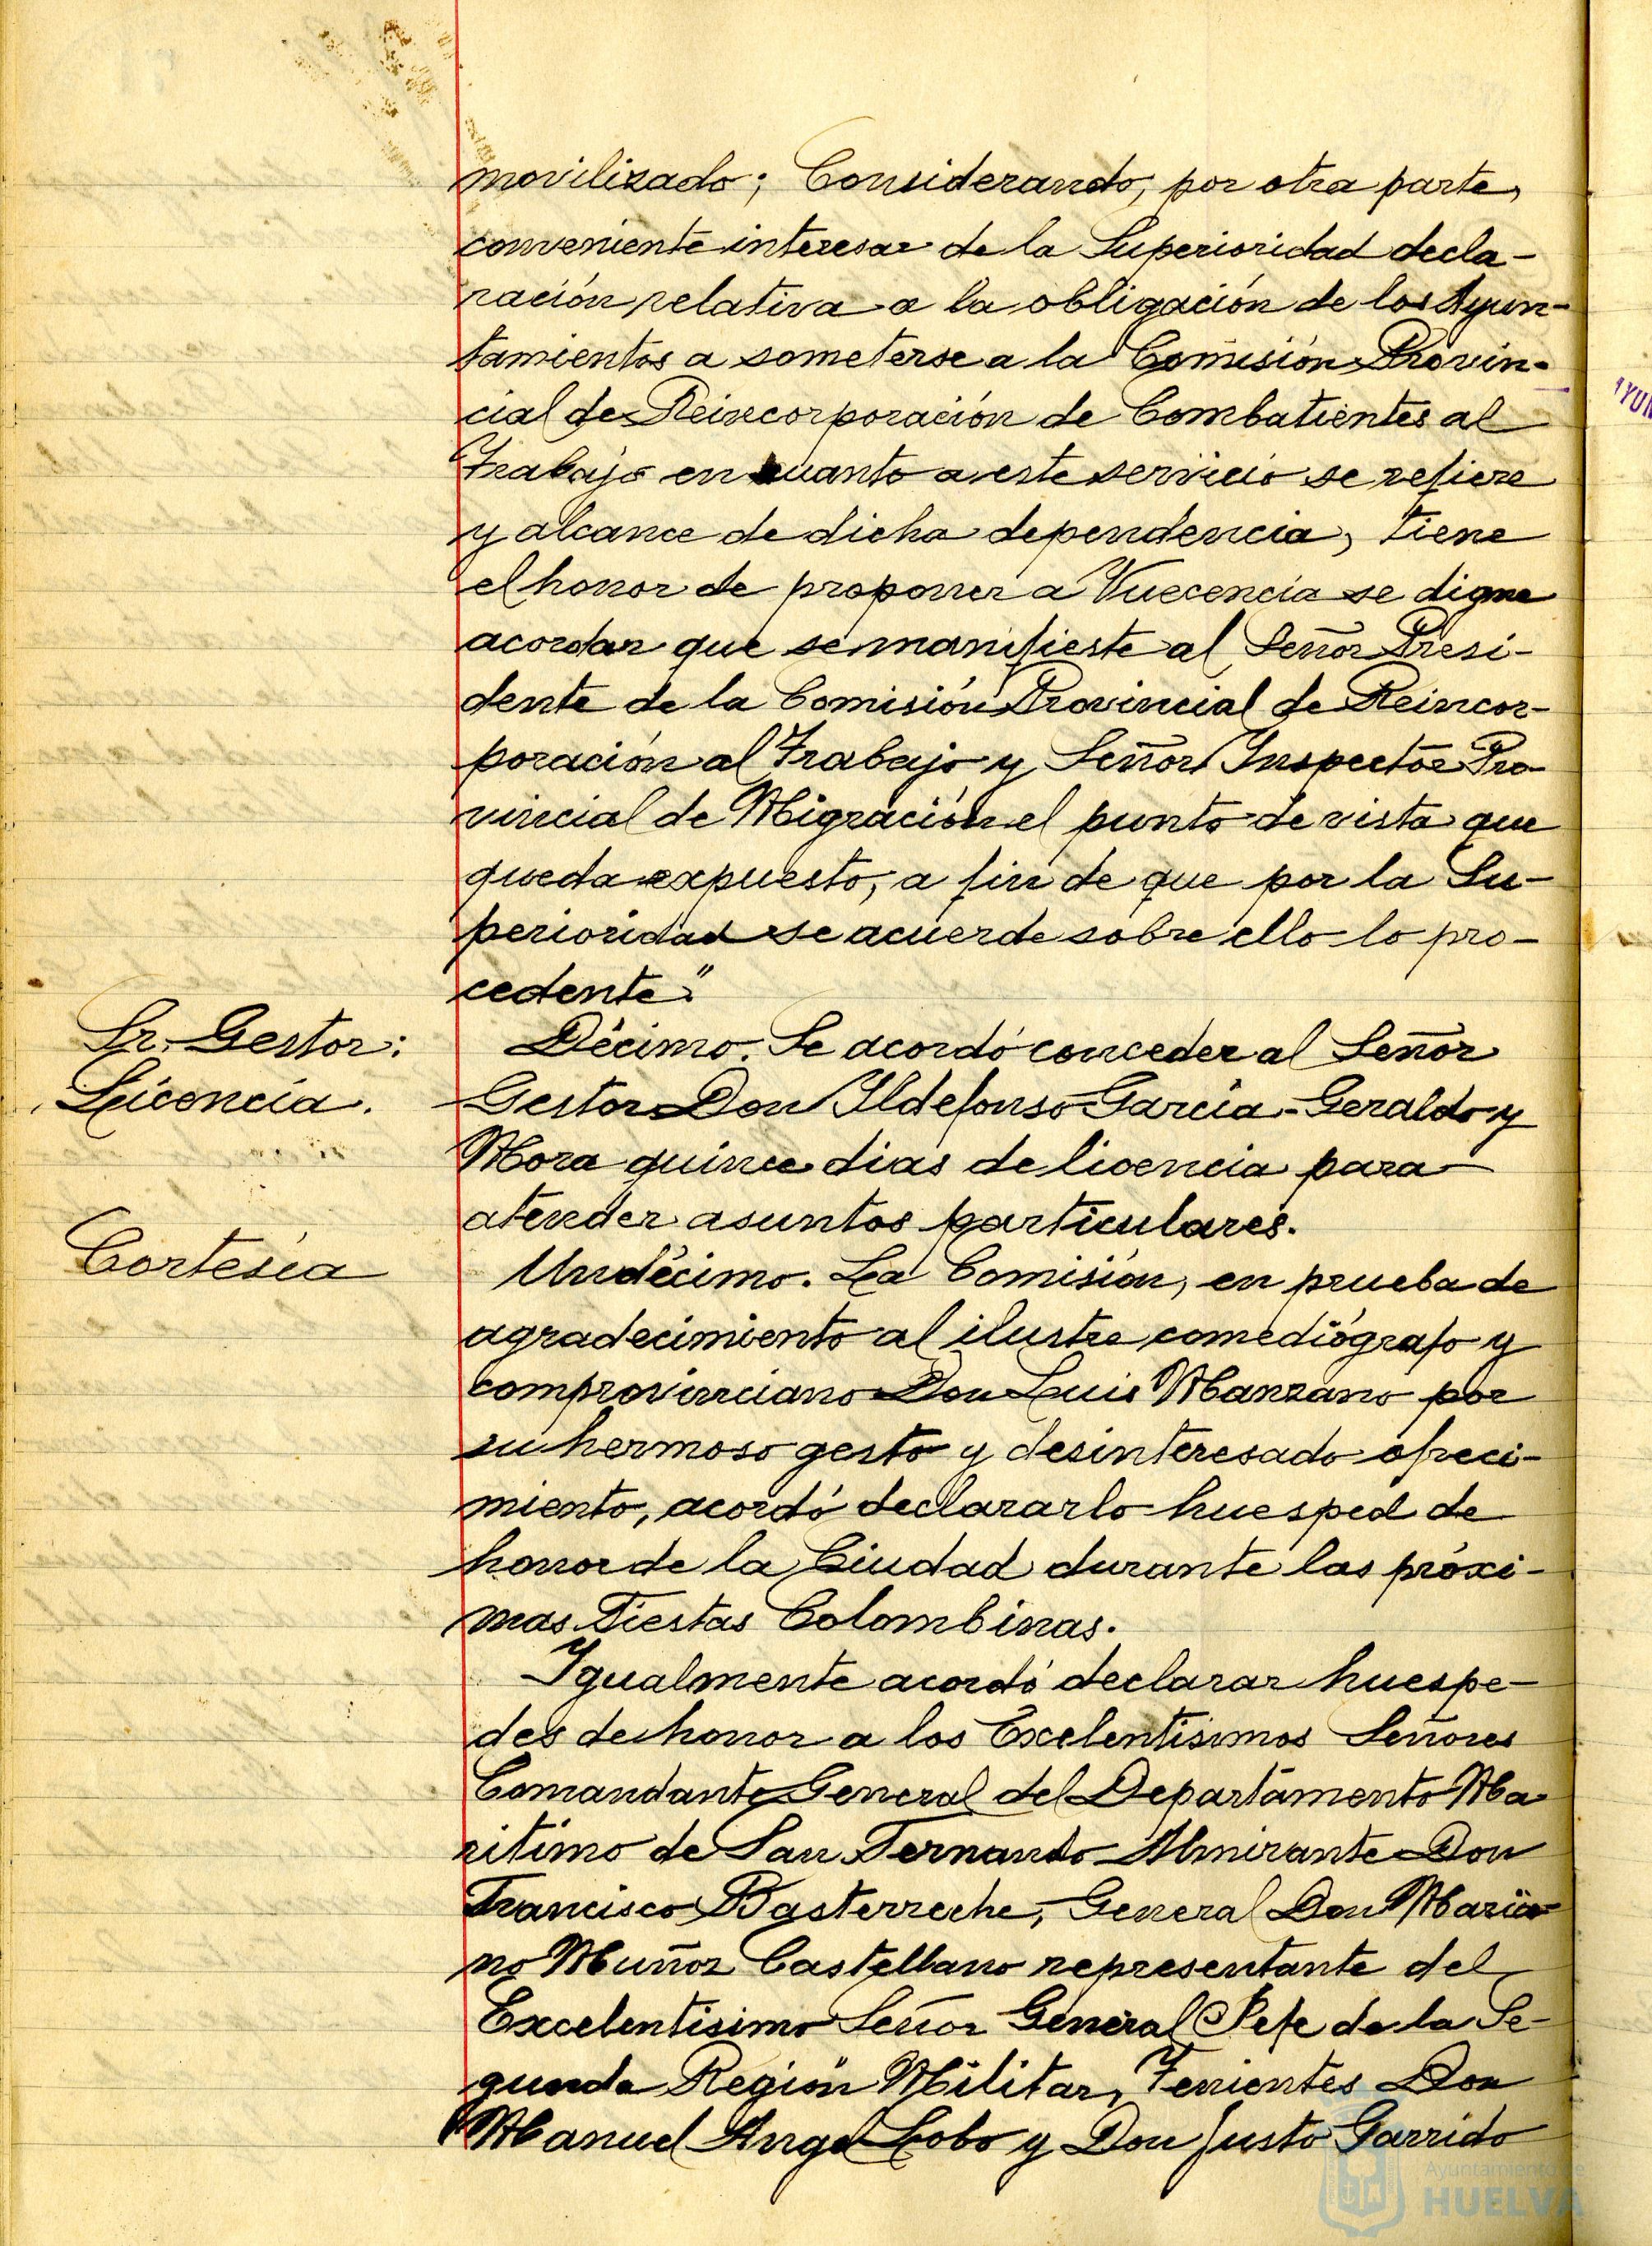 movilizado; Considerando, por otra parte,
conveniente interesar de la Superioridad decla-
ración relativa a la obligación de los Ayun-
tamientos a someterse a la Comisión Provin-
cial de Reincorporación de Combatientes al
Trabajo en cuanto a este servicio se refiere
y alcance de dicha dependencia, tiene
el honor de proponer a Vuecencia se digne
acordar que se manifieste al Señor Presi-
dente de la Comisión Provincial de Reincor-
poración al Trabajo y Señor Inspector Pro-
vincial de Migración el punto de vista que
queda expuesto, a fin de que por la Su-
perioridad se acuerde sobre ello lo pro-
cedente."
Sr. Gestor:
Licencia.
Décimo. Se acordó conceder al Señor
Gestor Don Ildefonso Garcia-Geraldo y
Mora quince dias de licencia para
atender asuntos particulares.
Cortesía
Undécimo. La Comisión, en prueba de
agradecimiento al ilustre comediógrafo y
comprovinciano Don Luis Manzano por
su hermoso gesto y desinteresado ofreci-
miento, acordó declararlo huesped de
honor de la Ciudad durante las próxi-
mas Fiestas Colombinas.
Igualmente acordó declarar huespe-
des de honor a los Excelentisimos Señores
Comandante General del Departamento Ma-
ritimo de San Fernando Almirante Don
Francisco Basterreche, General Don Maria-
no Muñoz Castellano representante del
Excelentisimo Señor General Jefe de la Se-
gunda Región Militar, Tenientes Don
Manuel Angel Lobo y Don Justo Garrido
AYUN
Ayuntamiento de
HUELVA